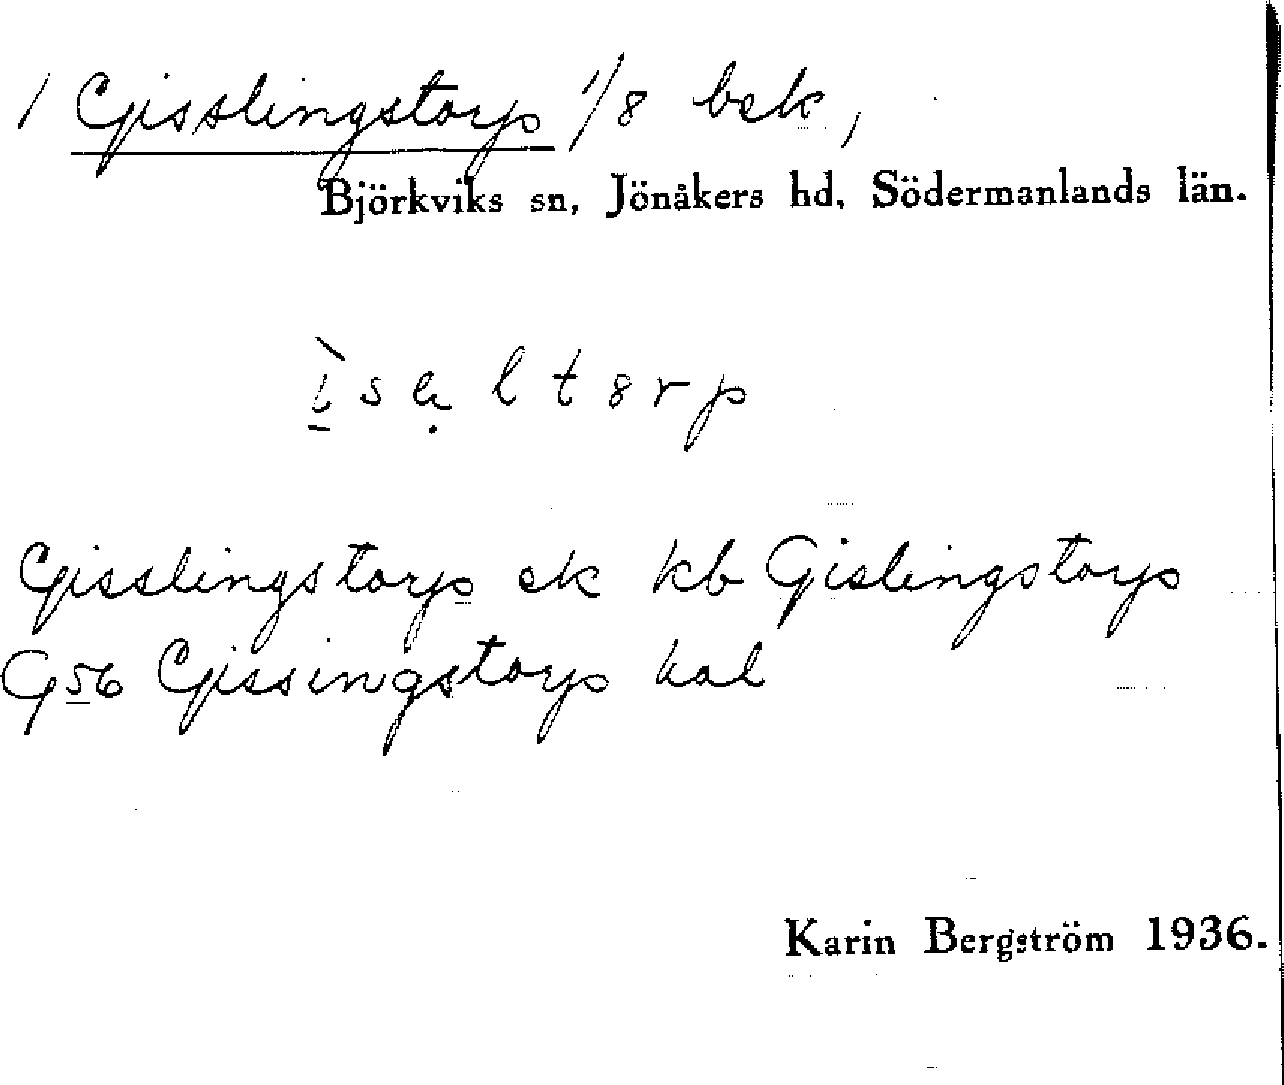 1 Gisslingstorp 1/8 bek,
Björkviks sn, Jönåkers hd, Södermanlands län.
Gisslingstorp ek kb Gislingstorp
G 56 Gissingstorp hal
Karin Bergström 1936.